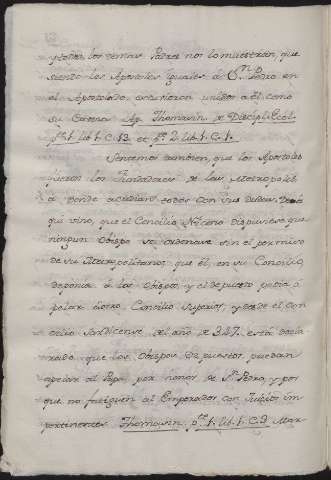 y todos los demas Padres nos lo muestran, que
siendo los Apostoles iguales á Sn. Pedro en
el Apostolado, estuvieron unidos a él como
su Cabeza Ap. Thomasin. de Discipl. Eccl.
pte. 1. lib. 1. C. 13. et pe. 2. lib. 1. C. 1.
Sentamos tambien, que los Apostoles
fueron los Fundadores de las Metropoles
á donde acudian todos con sus dudas. De a
qui vino, que el Concilio Niceno dispusiese que
ningun Obispo se ordenase sin el permiso
de su Metropolitano: que él, en su Concilio
deponia á los Obispos, y el depuesto podia a
pelar á otro Concilio superior, y desde el Con
cilio Sardicense del año de 347. está decla
rado que los Obispos depuestos puedan
apelar al Papa por honor de Sn. Pedro, y por
que no fatiguen al Emperador con suplicas im
pertinentes Thomasin. pte. 1. lib. 1. C. 9. Mar-